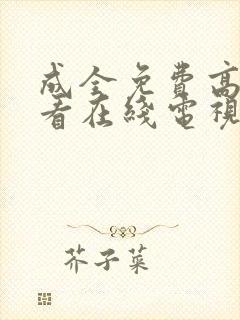 成全免費高
看在綫電視
芥子菜